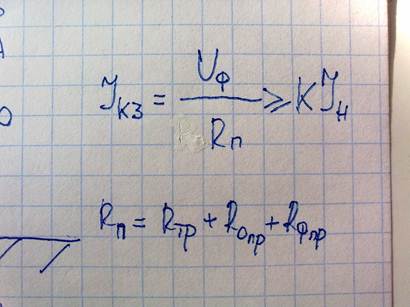 Iкз = Uф / Rп ⩾ KIн
Rп = Rтр + Rопр + Rфпр